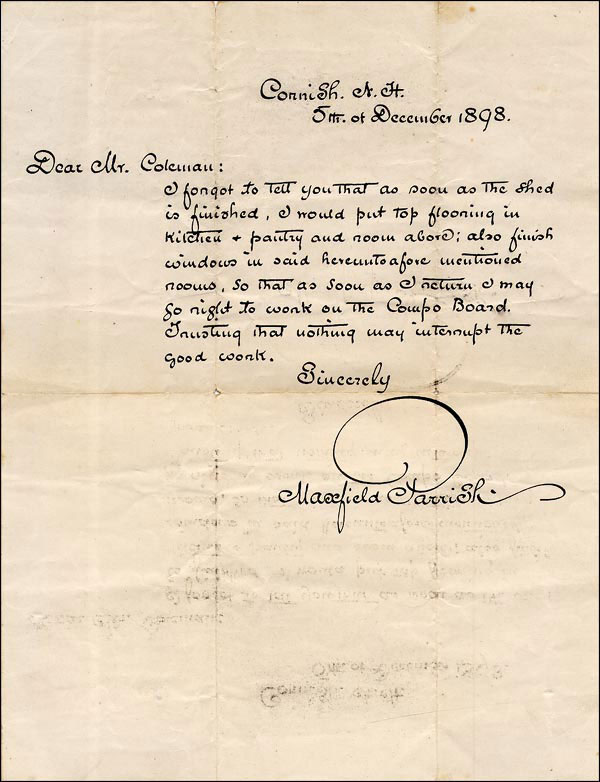 Cornish. N. H.
5th. of December 1898.
Dear Mr. Coleman:
I forgot to tell you that as soon as the shed
is finished, I would put top flooring in
kitchen + pantry and room above; also finish
windows in said hereuntoafore mentioned
rooms, so that as soon as I return I may
go right to work on the Compo Board.
Trusting that nothing may interrupt the
good work.
Sincerely
Maxfield Parrish.